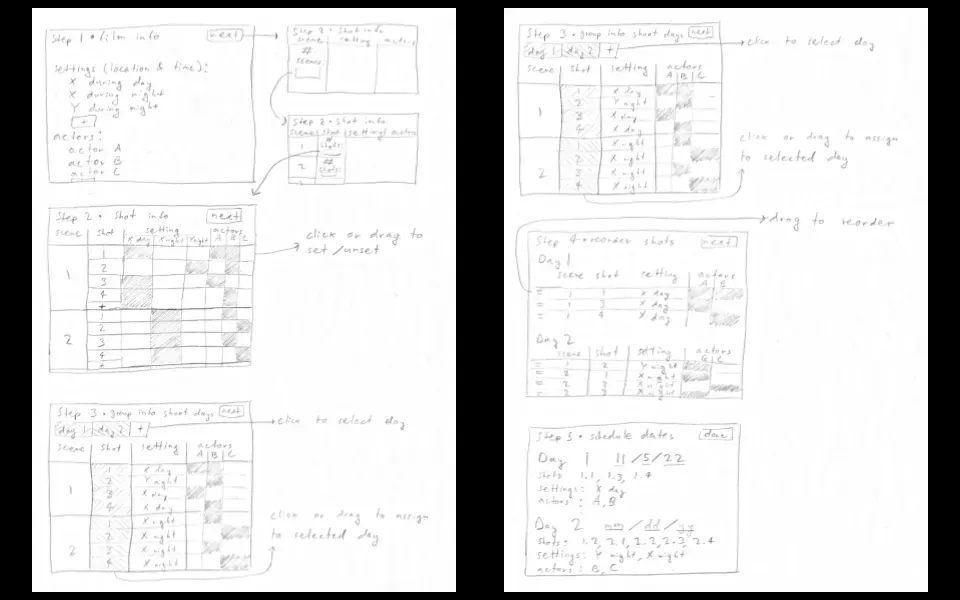 Step 1 • film info
next
settings (location & time):
X during day
X during night
Y during night
+
actors:
actor A
actor B
actor C
Step 2 • Shot info
scene setting actors
#
scenes
Step 2 • Shot info
scene shot setting actors
1 # shots:
2 # shots:
Step 2 • Shot info
next
scene shot setting actors
X day X night Y night A B C
1
1
2
3
4
+
2
1
2
3
4
+
click or drag to
set/unset
Step 3 • group into shoot days
next
day 1 day 2 +
click to select day
scene shot setting actors
A B C
1
1 X day
2 Y night
3 X day
4 X day
2
1 X night
2 X night
3 X night
4 X night
click or drag to assign
to selected day
Step 3 • group into shoot days
next
day 1 day 2 +
click to select day
scene shot setting actors
A B C
1
1 X day
2 Y night
3 X day
4 X day
2
1 X night
2 X night
3 X night
4 X night
click or drag to assign
to selected day
drag to reorder
Step 4 • reorder shots
next
Day 1
scene shot setting actors
A B
= 1 1 X day
= 1 3 X day
= 1 4 X day
Day 2
scene shot setting actors
B C
= 1 2 Y night
= 2 1 X night
= 2 2 X night
= 2 3 X night
Step 5 • schedule dates
done
Day 1 11/5/22
shots: 1.1, 1.3, 1.4
settings: X day
actors: A, B
Day 2 mm/dd/yy
shots: 1.2, 2.1, 2.2, 2.3, 2.4
settings: Y night, X night
actors: B, C